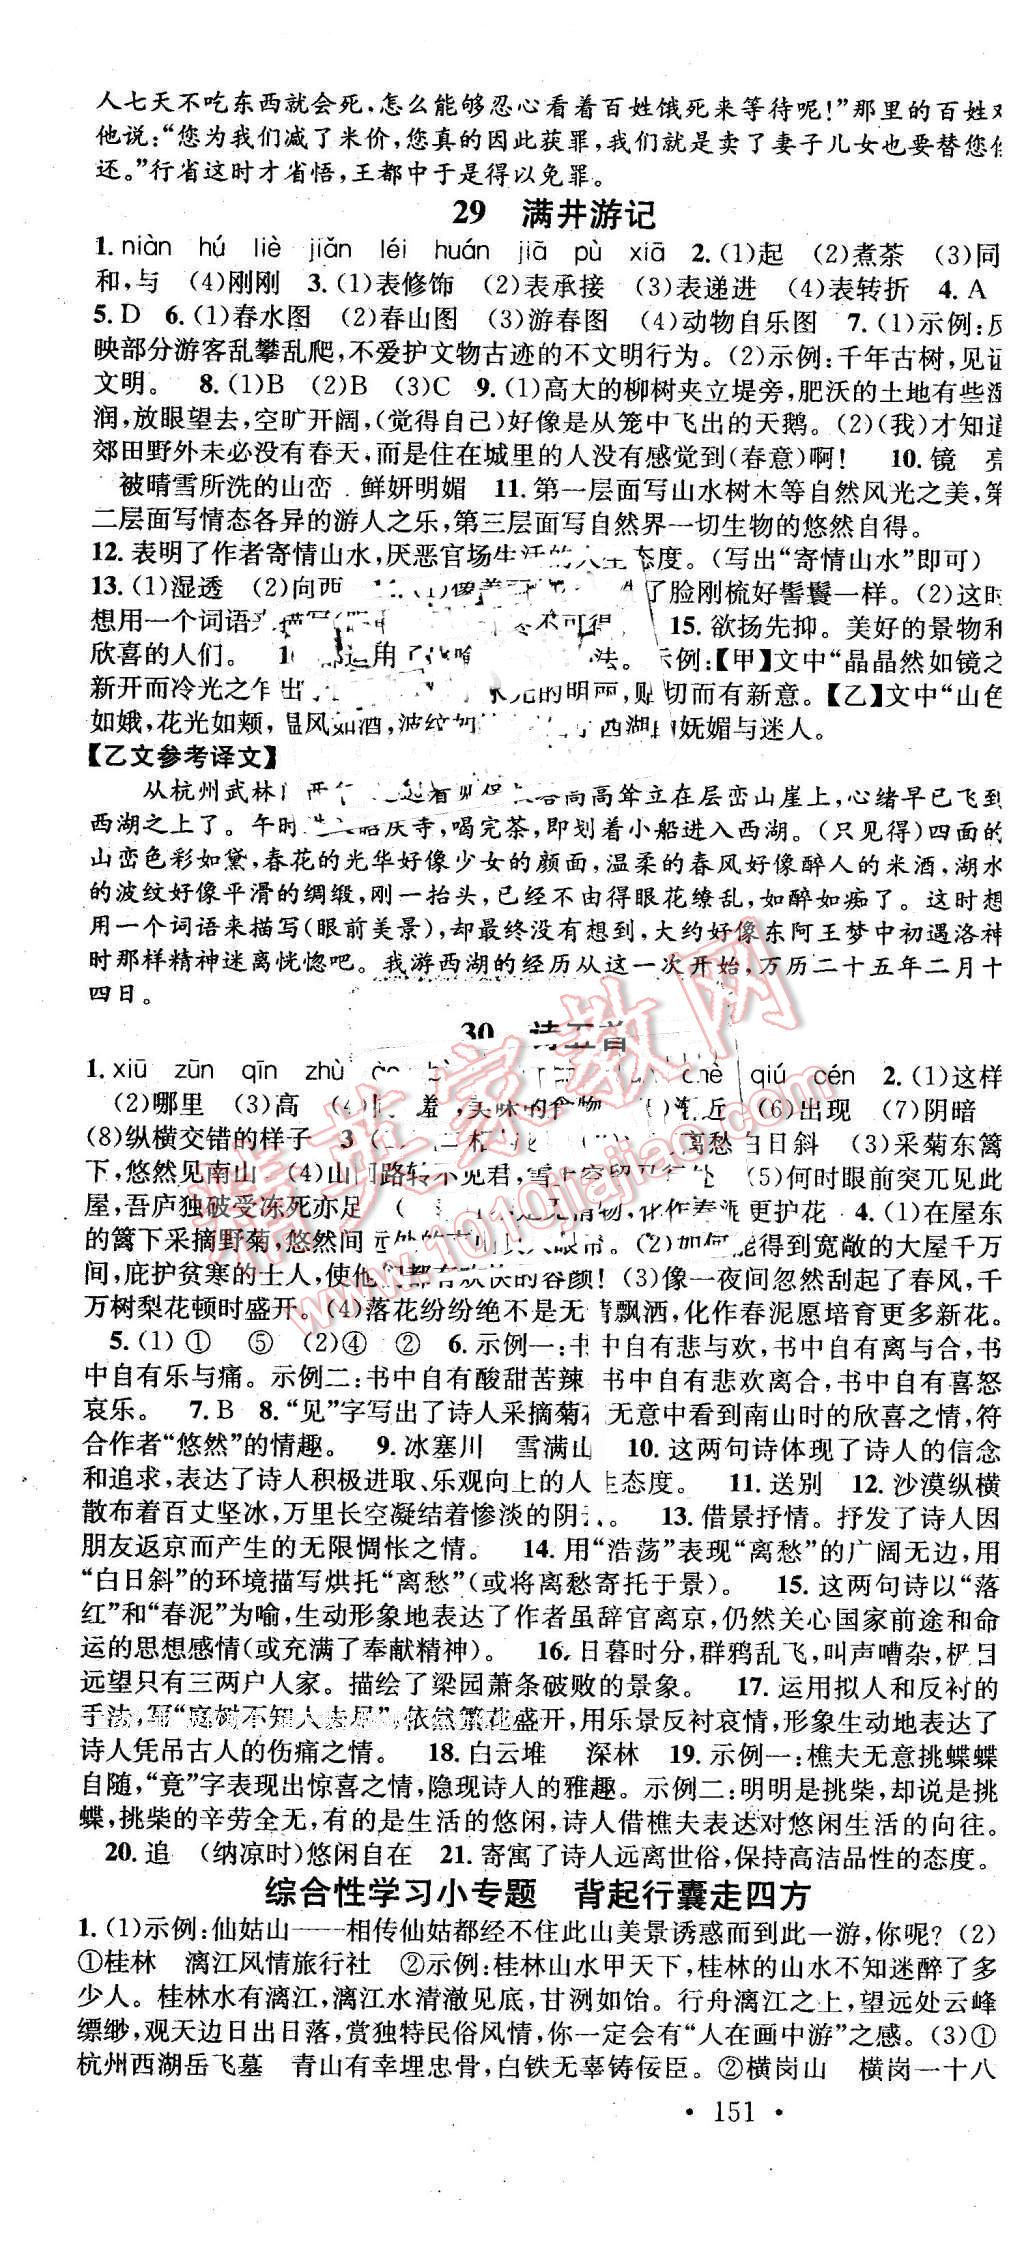 人七天不吃东西就会死,怎么能够忍心看着百姓饿死来等待呢!”那里的百姓对
他说:“您为我们减了米价,您真的因此获罪,我们就是卖了妻子儿女也要替您偿
还。”行省这时才省悟,王都中于是得以免罪。
29 满井游记
1. niàn hú liè jiǎn léi huán jiā pù xiā 2. (1)起 (2)煮茶 (3)同
和,与 (4)刚刚 3. (1)表修饰 (2)表承接 (3)表递进 (4)表转折 4. A
5. D 6. (1)春水图 (2)春山图 (3)游春图 (4)动物自乐图 7. (1)示例:反
映部分游客乱攀乱爬,不爱护文物古迹的不文明行为。(2)示例:千年古树,见证
文明。 8. (1)B (2)B (3)C 9. (1)高大的柳树夹立堤旁,肥沃的土地有些湿
润,放眼望去,空旷开阔,(觉得自己)好像是从笼中飞出的天鹅。(2)(我)才知道
郊田野外未必没有春天,而是住在城里的人没有感觉到(春意)啊! 10. 镜 亮
被晴雪所洗的山峦 鲜妍明媚 11. 第一层面写山水树木等自然风光之美,第
二层面写情态各异的游人之乐,第三层面写自然界一切生物的悠然自得。
12. 表明了作者寄情山水,厌恶官场生活的人生态度。(写出“寄情山水”即可)
13. (1)湿透 (2)向西 (1)像美 了脸刚梳好髻鬟一样。(2)这时
想用一个词语来描写 不可得 15. 欲扬先抑。美好的景物和
欣喜的人们。 运用了比喻 法。示例:【甲】文中“晶晶然如镜之
新开而冷光之乍出 水光的明丽,贴切而有新意。【乙】文中“山色
如娥,花光如颊,温风如酒,波纹如 西湖的妩媚与迷人。
【乙文参考译文】
从杭州武林门 高高耸立在层峦山崖上,心绪早已飞到
西湖之上了。午时 昭庆寺,喝完茶,即划着小船进入西湖。(只见得)四面的
山峦色彩如黛,春花的光华好像少女的颜面,温柔的春风好像醉人的米酒,湖水
的波纹好像平滑的绸缎,刚一抬头,已经不由得眼花缭乱,如醉如痴了。这时想
用一个词语来描写(眼前美景),却最终没有想到,大约好像东阿王梦中初遇洛神
时那样精神迷离恍惚吧。我游西湖的经历从这一次开始,万历二十五年二月十
四日。
30 诗五首
1. xiū zūn qīn zhù chè qiú cén 2. (1)这样
(2)哪里 (3)高 (4) 羞,美味的食物 渐近 (6)出现 (7)阴暗
(8)纵横交错的样子 3 离愁白日斜 (3)采菊东篱
下,悠然见南山 (4)山回路转不见君,雪上空留马行处 (5)何时眼前突兀见此
屋,吾庐独破受冻死亦足 (6) 是无情物,化作春泥更护花 4. (1)在屋东
的篱下采摘野菊,悠然间 远处的南山映入眼帘。(2)如何能得到宽敞的大屋千万
间,庇护贫寒的士人,使他们都有欢快的容颜!(3)像一夜间忽然刮起了春风,千
万树梨花顿时盛开。(4)落花纷纷绝不是无情飘洒,化作春泥愿培育更多新花。
5. (1)① ⑤ (2)④ ② 6. 示例一:书中自有悲与欢,书中自有离与合,书
中自有乐与痛。示例二:书中自有酸甜苦辣 书中自有悲欢离合,书中自有喜怒
哀乐。 7. B 8. “见”字写出了诗人采摘菊花 无意中看到南山时的欣喜之情,符
合作者“悠然”的情趣。 9. 冰塞川 雪满山 10. 这两句诗体现了诗人的信念
和追求,表达了诗人积极进取、乐观向上的人生态度。 11. 送别 12. 沙漠纵横
散布着百丈坚冰,万里长空凝结着惨淡的阴云。 13. 借景抒情。抒发了诗人因
朋友返京而产生的无限惆怅之情。 14. 用“浩荡”表现“离愁”的广阔无边,用
“白日斜”的环境描写烘托“离愁”(或将离愁寄托于景)。 15. 这两句诗以“落
红”和“春泥”为喻,生动形象地表达了作者虽辞官离京,仍然关心国家前途和命
运的思想感情(或充满了奉献精神)。 16. 日暮时分,群鸦乱飞,叫声嘈杂,极目
远望只有三两户人家。描绘了梁园萧条破败的景象。 17. 运用拟人和反衬的
手法,写“庭树不知人去尽”,依然繁花盛开,用乐景反衬哀情,形象生动地表达了
诗人凭吊古人的伤痛之情。 18. 白云堆 深林 19. 示例一:樵夫无意挑蝶蝶
自随,“竟”字表现出惊喜之情,隐现诗人的雅趣。示例二:明明是挑柴,却说是挑
蝶,挑柴的辛劳全无,有的是生活的悠闲,诗人借樵夫表达对悠闲生活的向往。
20. 追 (纳凉时)悠闲自在 21. 寄寓了诗人远离世俗,保持高洁品性的态度。
综合性学习小专题 背起行囊走四方
1. (1)示例:仙姑山——相传仙姑都经不住此山美景诱惑而到此一游,你呢?(2)
①桂林 漓江风情旅行社 ②示例:桂林山水甲天下,桂林的山水不知迷醉了多
少人。桂林水有漓江,漓江水清澈见底,甘洌如饴。行舟漓江之上,望远处云峰
缥缈,观天边日出日落,赏独特民俗风情,你一定会有“人在画中游”之感。(3)①
杭州西湖岳飞墓 青山有幸埋忠骨,白铁无辜铸佞臣。②横岗山 横岗一十八
· 151 ·
精英家教网
www.1010jiajiao.com